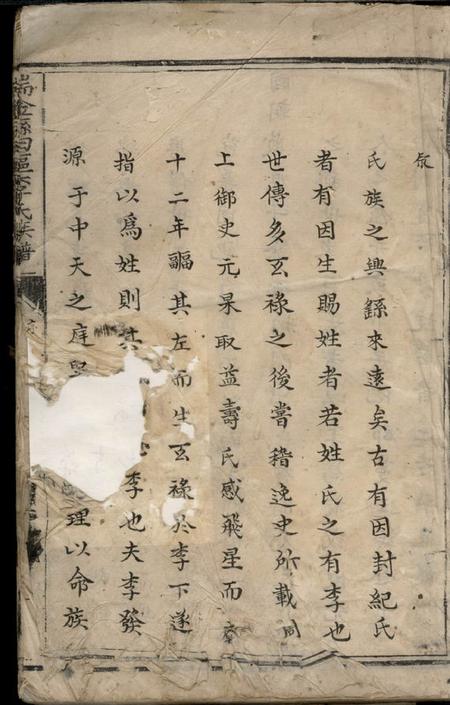 叙
氏族之興繇來遠矣古有因封紀氏
者有因生賜姓者若姓氏之有李也
世傳多玄祿之後嘗稽逸史所載周
上御史元杲取益壽氏感飛星而孕
十二年疈其左而生玄祿於李下遂
指以爲姓則其李也夫李發
源于中天之庭理以命族
瑞金縣李氏族譜